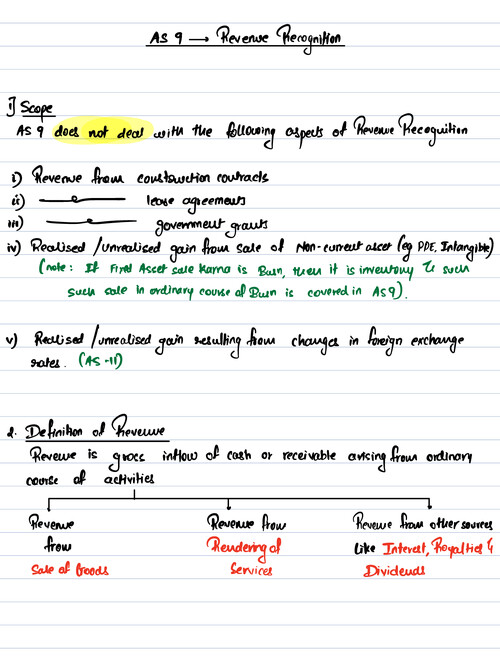 AS 9 → Revenue Recognition
1] Scope
AS 9 does not deal with the following aspects of Revenue Recognition
i) Revenue from construction contracts
ii) —〃— lease agreements
iii) —〃— government grants
iv) Realised / Unrealised gain from sale of Non-current asset (eg PPE, Intangible)
(note: If Fixed Asset sale karna is Busn, then it is inventory & such
such sale in ordinary course of Busn is covered in AS 9).
v) Realised / unrealised gain resulting from changes in foreign exchange
rates. (AS-11)
2. Definition of Revenue
Revenue is gross inflow of cash or receivable arising from ordinary
course of activities
Revenue from Sale of Goods
Revenue from Rendering of Services
Revenue from other sources like Interest, Royalties & Dividends